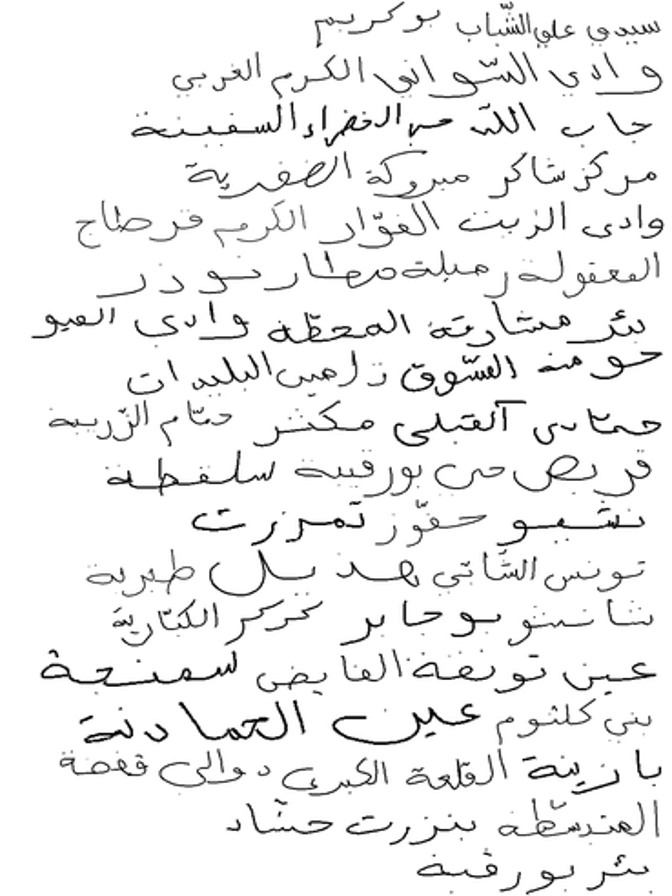 سيدي علي الشّباب بوكريم
وادي السّواني الكرم الغربي
جاب اللّه حي الخضراء السفينة
مركز شاكر مبروكة الضفرية
وادي الزيت الفوّار الكرم قرطاج
المعقولة رميلة مطار نوذر
بئر مشارقة المحطّة وادي
حومة السّوق زلعين البليدات
القبلي مكثر حمّام الزّريبة
قريص حي بورقيبة سلقطة
نشيو حفّوز تمزرت
تونس الشّاتي هذيل طبربة
شانشو بوجابر الكتّاريّة
عين تونقة الفايض سمنجة
بني كلثوم عين الحمادنة
بازينة القلعة الكبرى دوالي قفصة
بنزرت حشّاد
بئر بورقبة